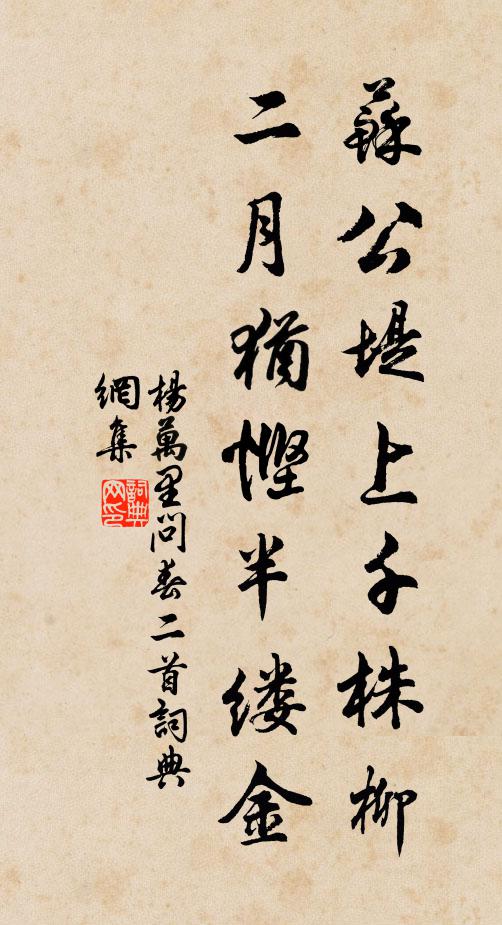 蘇公堤上千株柳
二月猶慳半缕金
楊萬里問春二首詞典
網集
詞典
网印